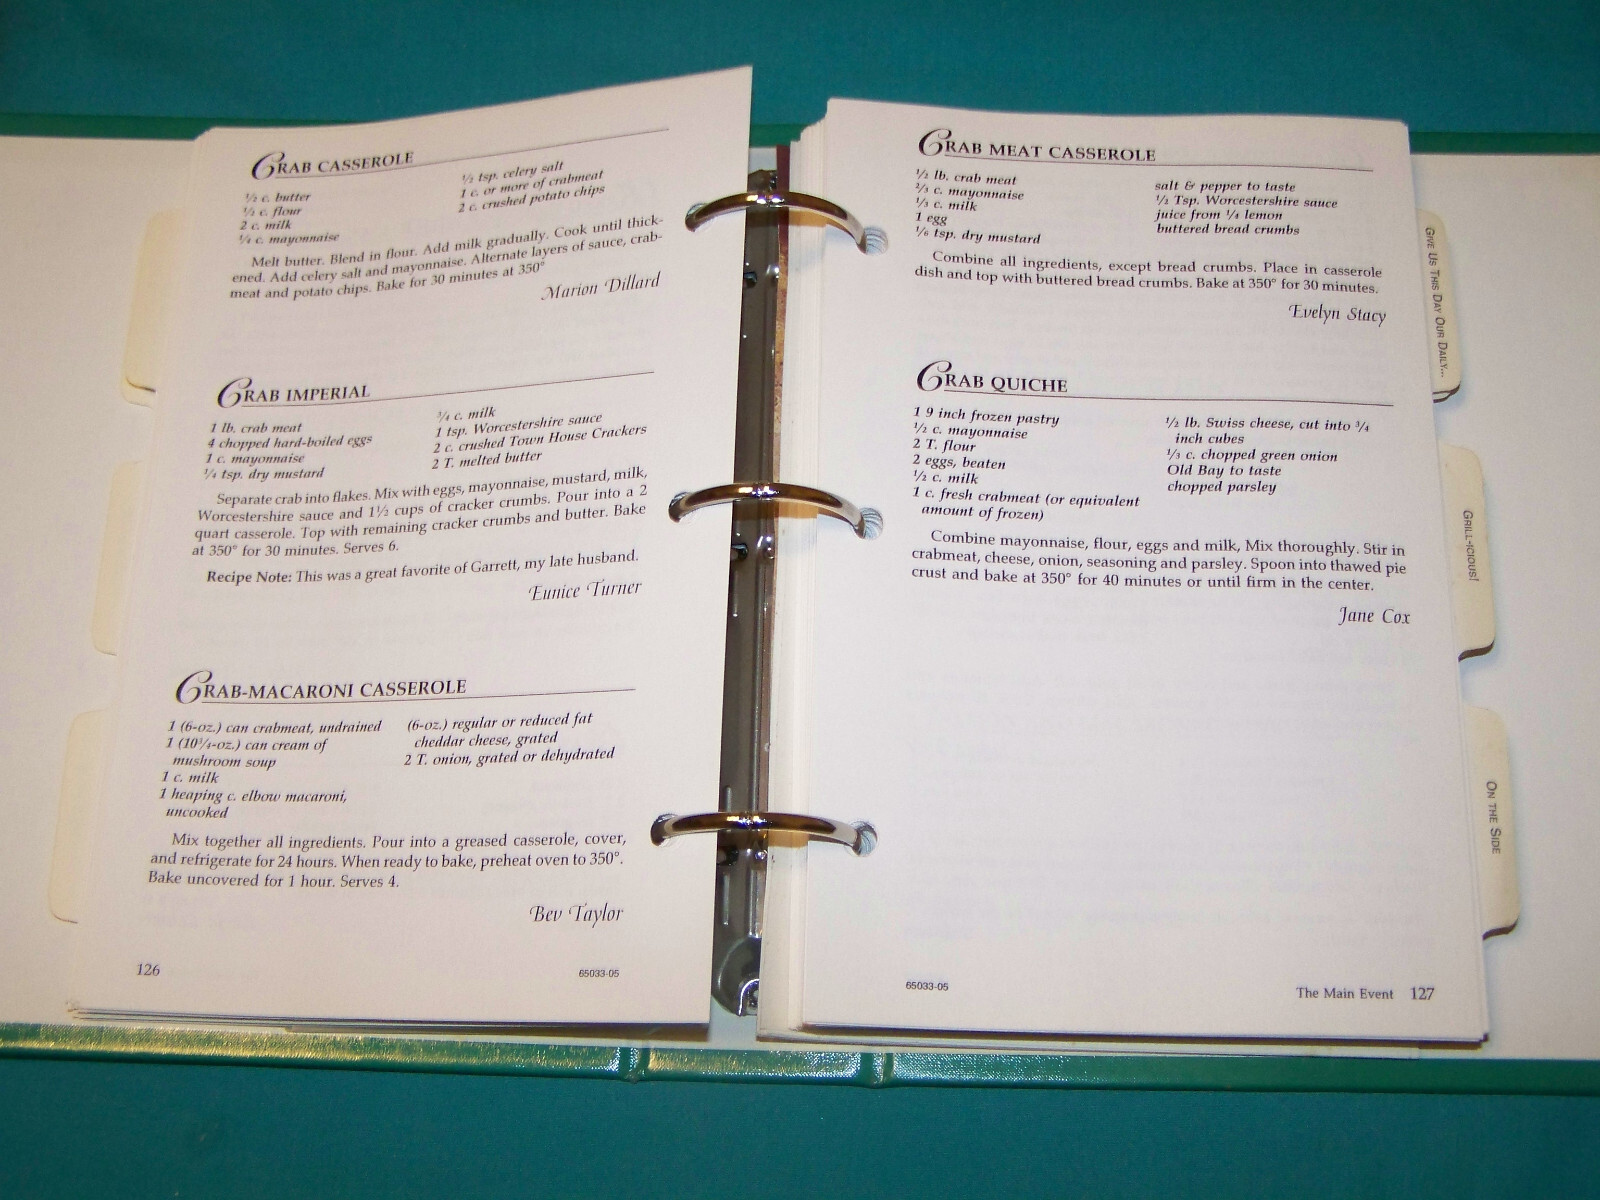 CRAB CASSEROLE
½ c. butter
½ c. flour
2 c. milk
¼ c. mayonnaise
½ tsp. celery salt
1 c. or more of crabmeat
2 c. crushed potato chips
Melt butter. Blend in flour. Add milk gradually. Cook until thick-
ened. Add celery salt and mayonnaise. Alternate layers of sauce, crab-
meat and potato chips. Bake for 30 minutes at 350°
Marion Dillard
CRAB IMPERIAL
1 lb. crab meat
4 chopped hard-boiled eggs
1 c. mayonnaise
¼ tsp. dry mustard
¾ c. milk
1 tsp. Worcestershire sauce
2 c. crushed Town House Crackers
2 T. melted butter
Separate crab into flakes. Mix with eggs, mayonnaise, mustard, milk,
Worcestershire sauce and 1½ cups of cracker crumbs. Pour into a 2
quart casserole. Top with remaining cracker crumbs and butter. Bake
at 350° for 30 minutes. Serves 6.
Recipe Note: This was a great favorite of Garrett, my late husband.
Eunice Turner
CRAB-MACARONI CASSEROLE
1 (6-oz.) can crabmeat, undrained
1 (10¾-oz.) can cream of
mushroom soup
1 c. milk
1 heaping c. elbow macaroni,
uncooked
(6-oz.) regular or reduced fat
cheddar cheese, grated
2 T. onion, grated or dehydrated
Mix together all ingredients. Pour into a greased casserole, cover,
and refrigerate for 24 hours. When ready to bake, preheat oven to 350°.
Bake uncovered for 1 hour. Serves 4.
Bev Taylor
126
65033-05
CRAB MEAT CASSEROLE
½ lb. crab meat
⅔ c. mayonnaise
⅓ c. milk
1 egg
⅙ tsp. dry mustard
salt & pepper to taste
½ Tsp. Worcestershire sauce
juice from ¼ lemon
buttered bread crumbs
Combine all ingredients, except bread crumbs. Place in casserole
dish and top with buttered bread crumbs. Bake at 350° for 30 minutes.
Evelyn Stacy
CRAB QUICHE
1 9 inch frozen pastry
½ c. mayonnaise
2 T. flour
2 eggs, beaten
½ c. milk
1 c. fresh crabmeat (or equivalent
amount of frozen)
½ lb. Swiss cheese, cut into ¾
inch cubes
⅓ c. chopped green onion
Old Bay to taste
chopped parsley
Combine mayonnaise, flour, eggs and milk, Mix thoroughly. Stir in
crabmeat, cheese, onion, seasoning and parsley. Spoon into thawed pie
crust and bake at 350° for 40 minutes or until firm in the center.
Jane Cox
65033-05
The Main Event 127
GIVE US THIS DAY OUR DAILY...
GRILL-ICIOUS!
ON THE SIDE